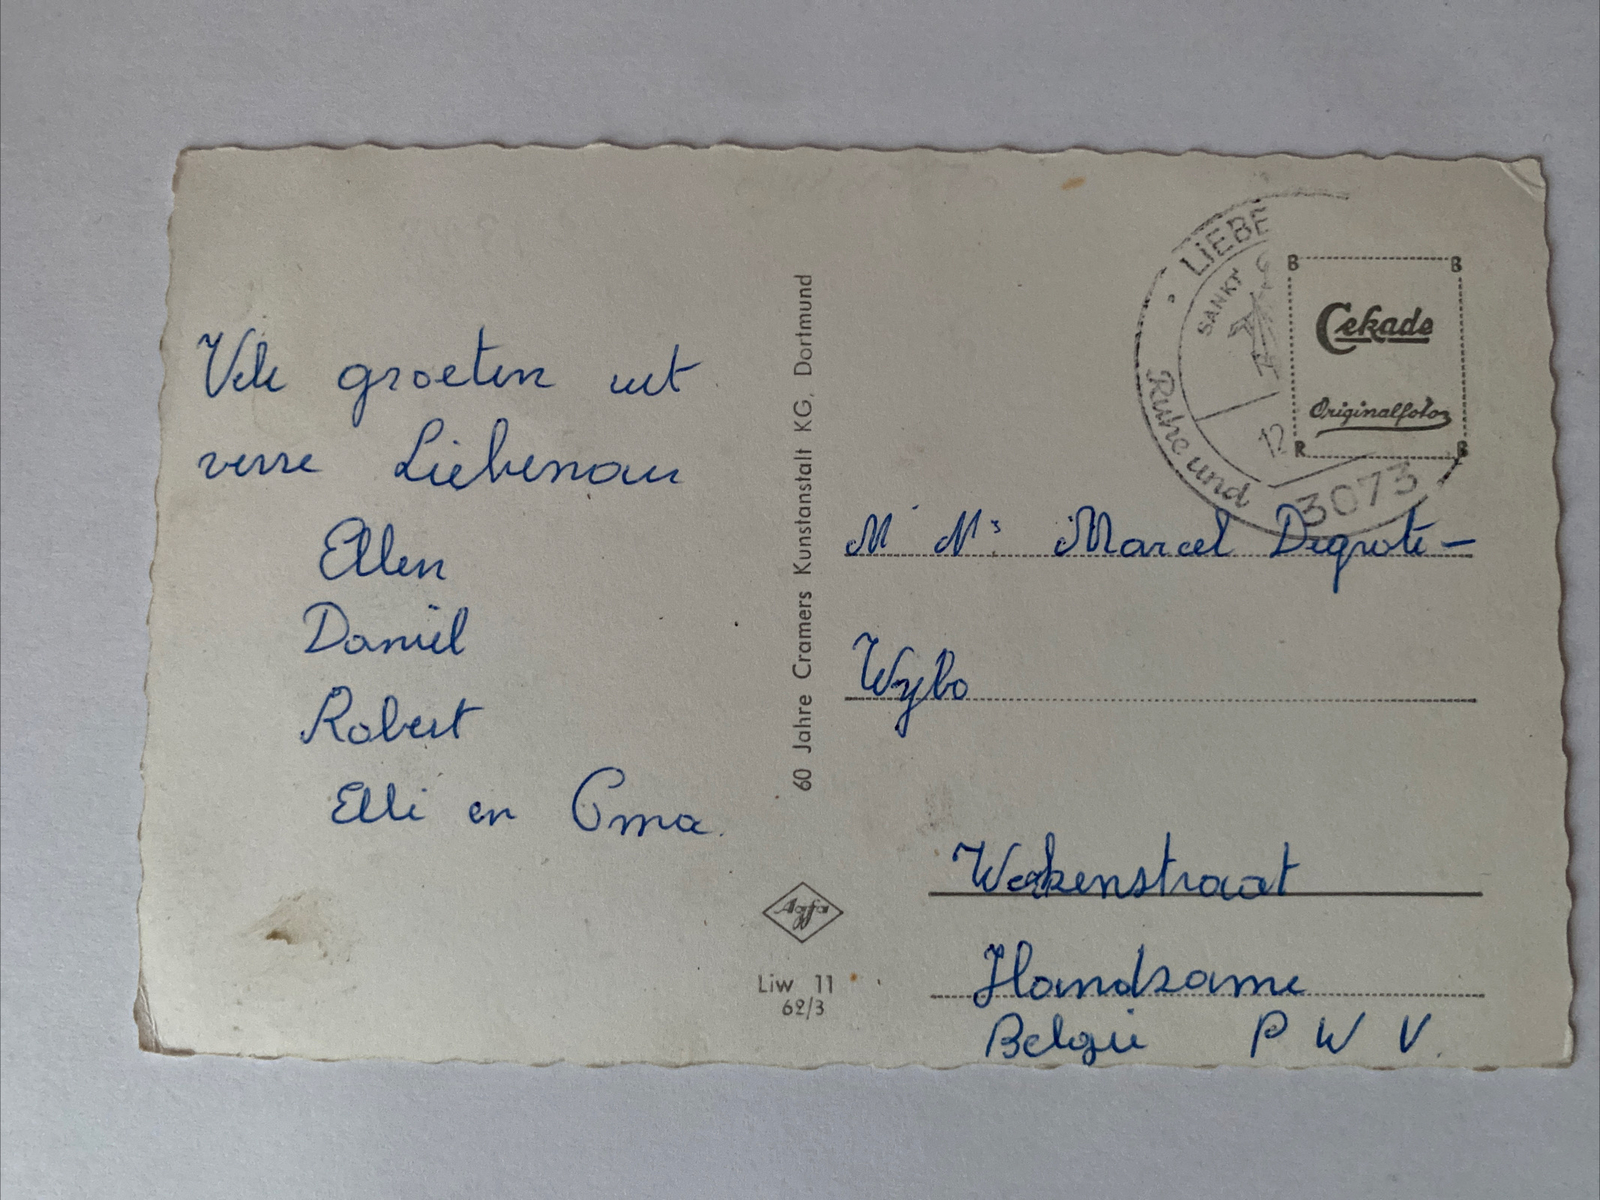 Vele groeten uit
verre Liebenau
Ellen
Daniël
Robert
Elli en Oma.
60 Jahre Cramers Kunstanstalt KG, Dortmund
Agfa
Liw 11
62/3
LIEBE
SANKT
Ruhe und
12
3073
B B
Cekade
Originalfoto
R B
M Mˢ Marcel Degrote-
Wybo
Werkenstraat
Handzame
België P W V.